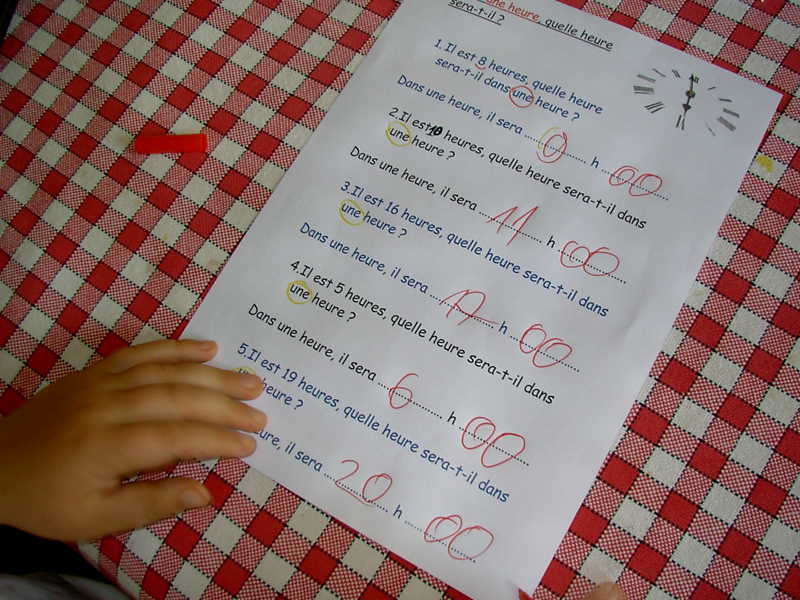 une heure, quelle heure
sera-t-il ?
1.Il est 8 heures, quelle heure
sera-t-il dans une heure ?
Dans une heure, il sera ............ h 00
2.Il est 10 heures, quelle heure sera-t-il dans
une heure ?
Dans une heure, il sera 11 h 00
3.Il est 16 heures, quelle heure sera-t-il dans
une heure ?
Dans une heure, il sera 17 h 00
4.Il est 5 heures, quelle heure sera-t-il dans
une heure ?
Dans une heure, il sera 6 h 00
5.Il est 19 heures, quelle heure sera-t-il dans
heure ?
eure, il sera 20 h 00